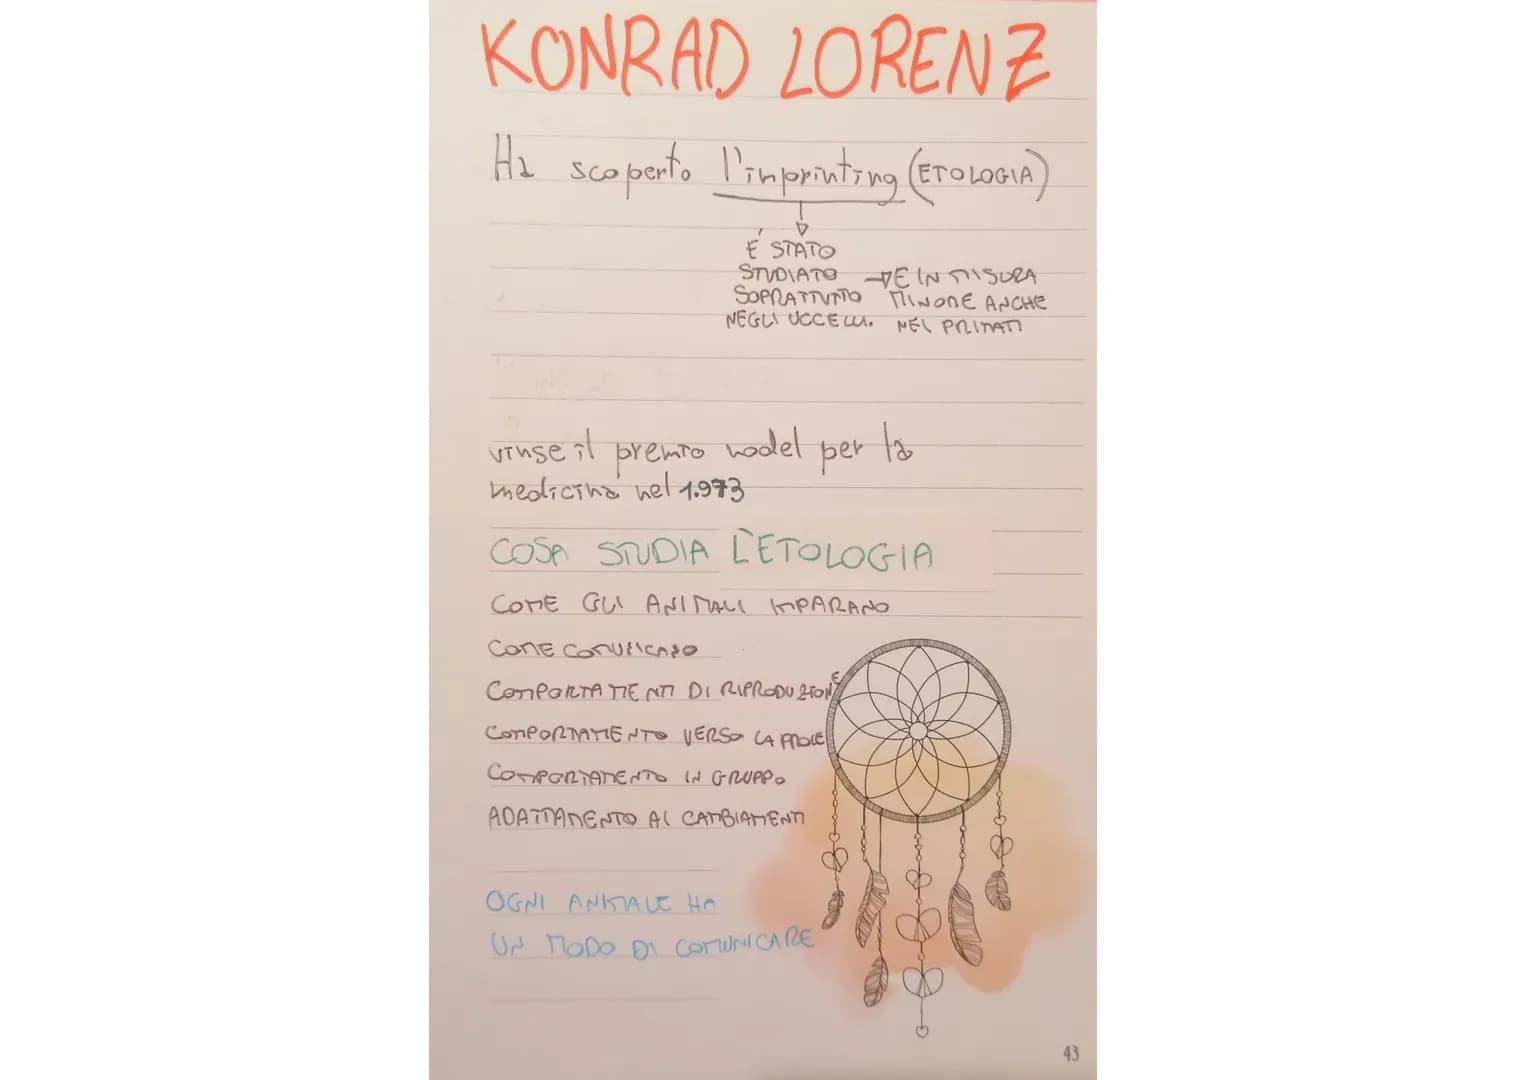 KONRAD LORENZ
Ha scoperto l'inprinting (ETOLOGIA)
É STATO
STUDIATO → E IN MISURA
SOPRATTUTTO MINORE ANCHE
NEGLI UCCELLI. NEI PRIMATI
vinse il premio nodel per la
medicina nel 1.973
COSA STUDIA L'ETOLOGIA
COME GLI ANIMALI IMPARANO
COME COMUNICANO
COMPORTAMENTI DI RIPRODUZIONE
COMPORTAMENTO VERSO LA PROLE
COMPORTAMENTO IN GRUPPO
ADATTAMENTO AI CAMBIAMENTI
OGNI ANIMALE HA
UN MODO DI COMUNICARE
43